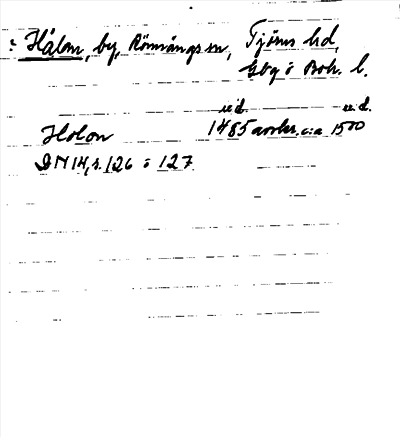 Hålan, by, Rönnängs sn, Tjörns hd,
Gbg o Boh. l.
u.d. u.d.
Holon 1485 avskr. c:a 1500
DN 14, s. 126 o 127